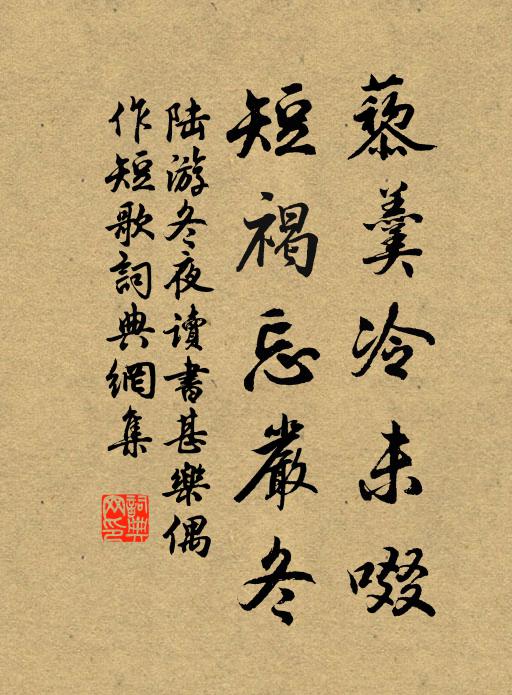 藜羹冷未啜
短褐忘嚴冬
陆游冬夜读書甚樂偶
作短歌詞典網集
詞典网印